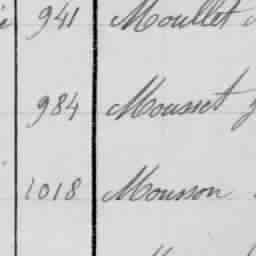 941 Moullet
984 Mousset
1018 Mousson